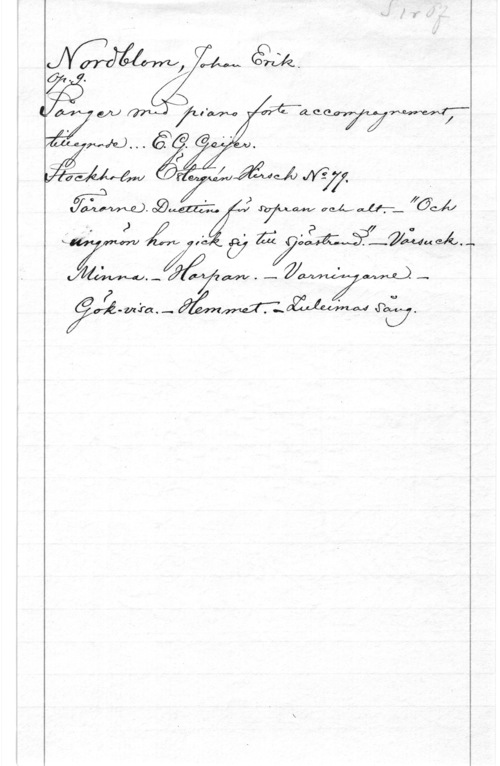 Nordblom, Johan Erik.
Op. 9.
Sånger med piano forte accompagnement,
tillegnade... E. G. Geijer.
Stockholm Östergrén-Hirsch No 79.
Tårarne. Duettino för sopran och alt. - "Och
ungmön hon gick sig till sjöastrand." - Vårsuck. -
Minna. - Harpan. - Varningarne. -
Gök-visa. - Hemmet. - Zuleimas Sång.